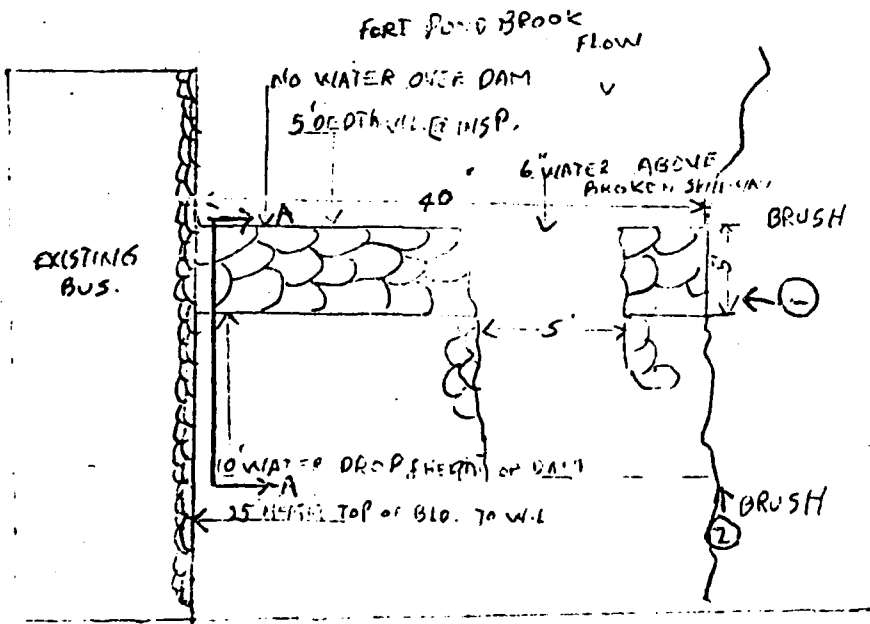 FORT POND BROOK
FLOW
NO WATER OVER DAM
5' INSP.
6" WATER ABOVE
BROKEN SPILLWAY
40'
A
BRUSH
EXISTING
BUS.
1
5'
10' WATER DROP & HEIGHT OF DAM
A
25' TOP OF BLD. TO W.L
BRUSH
2